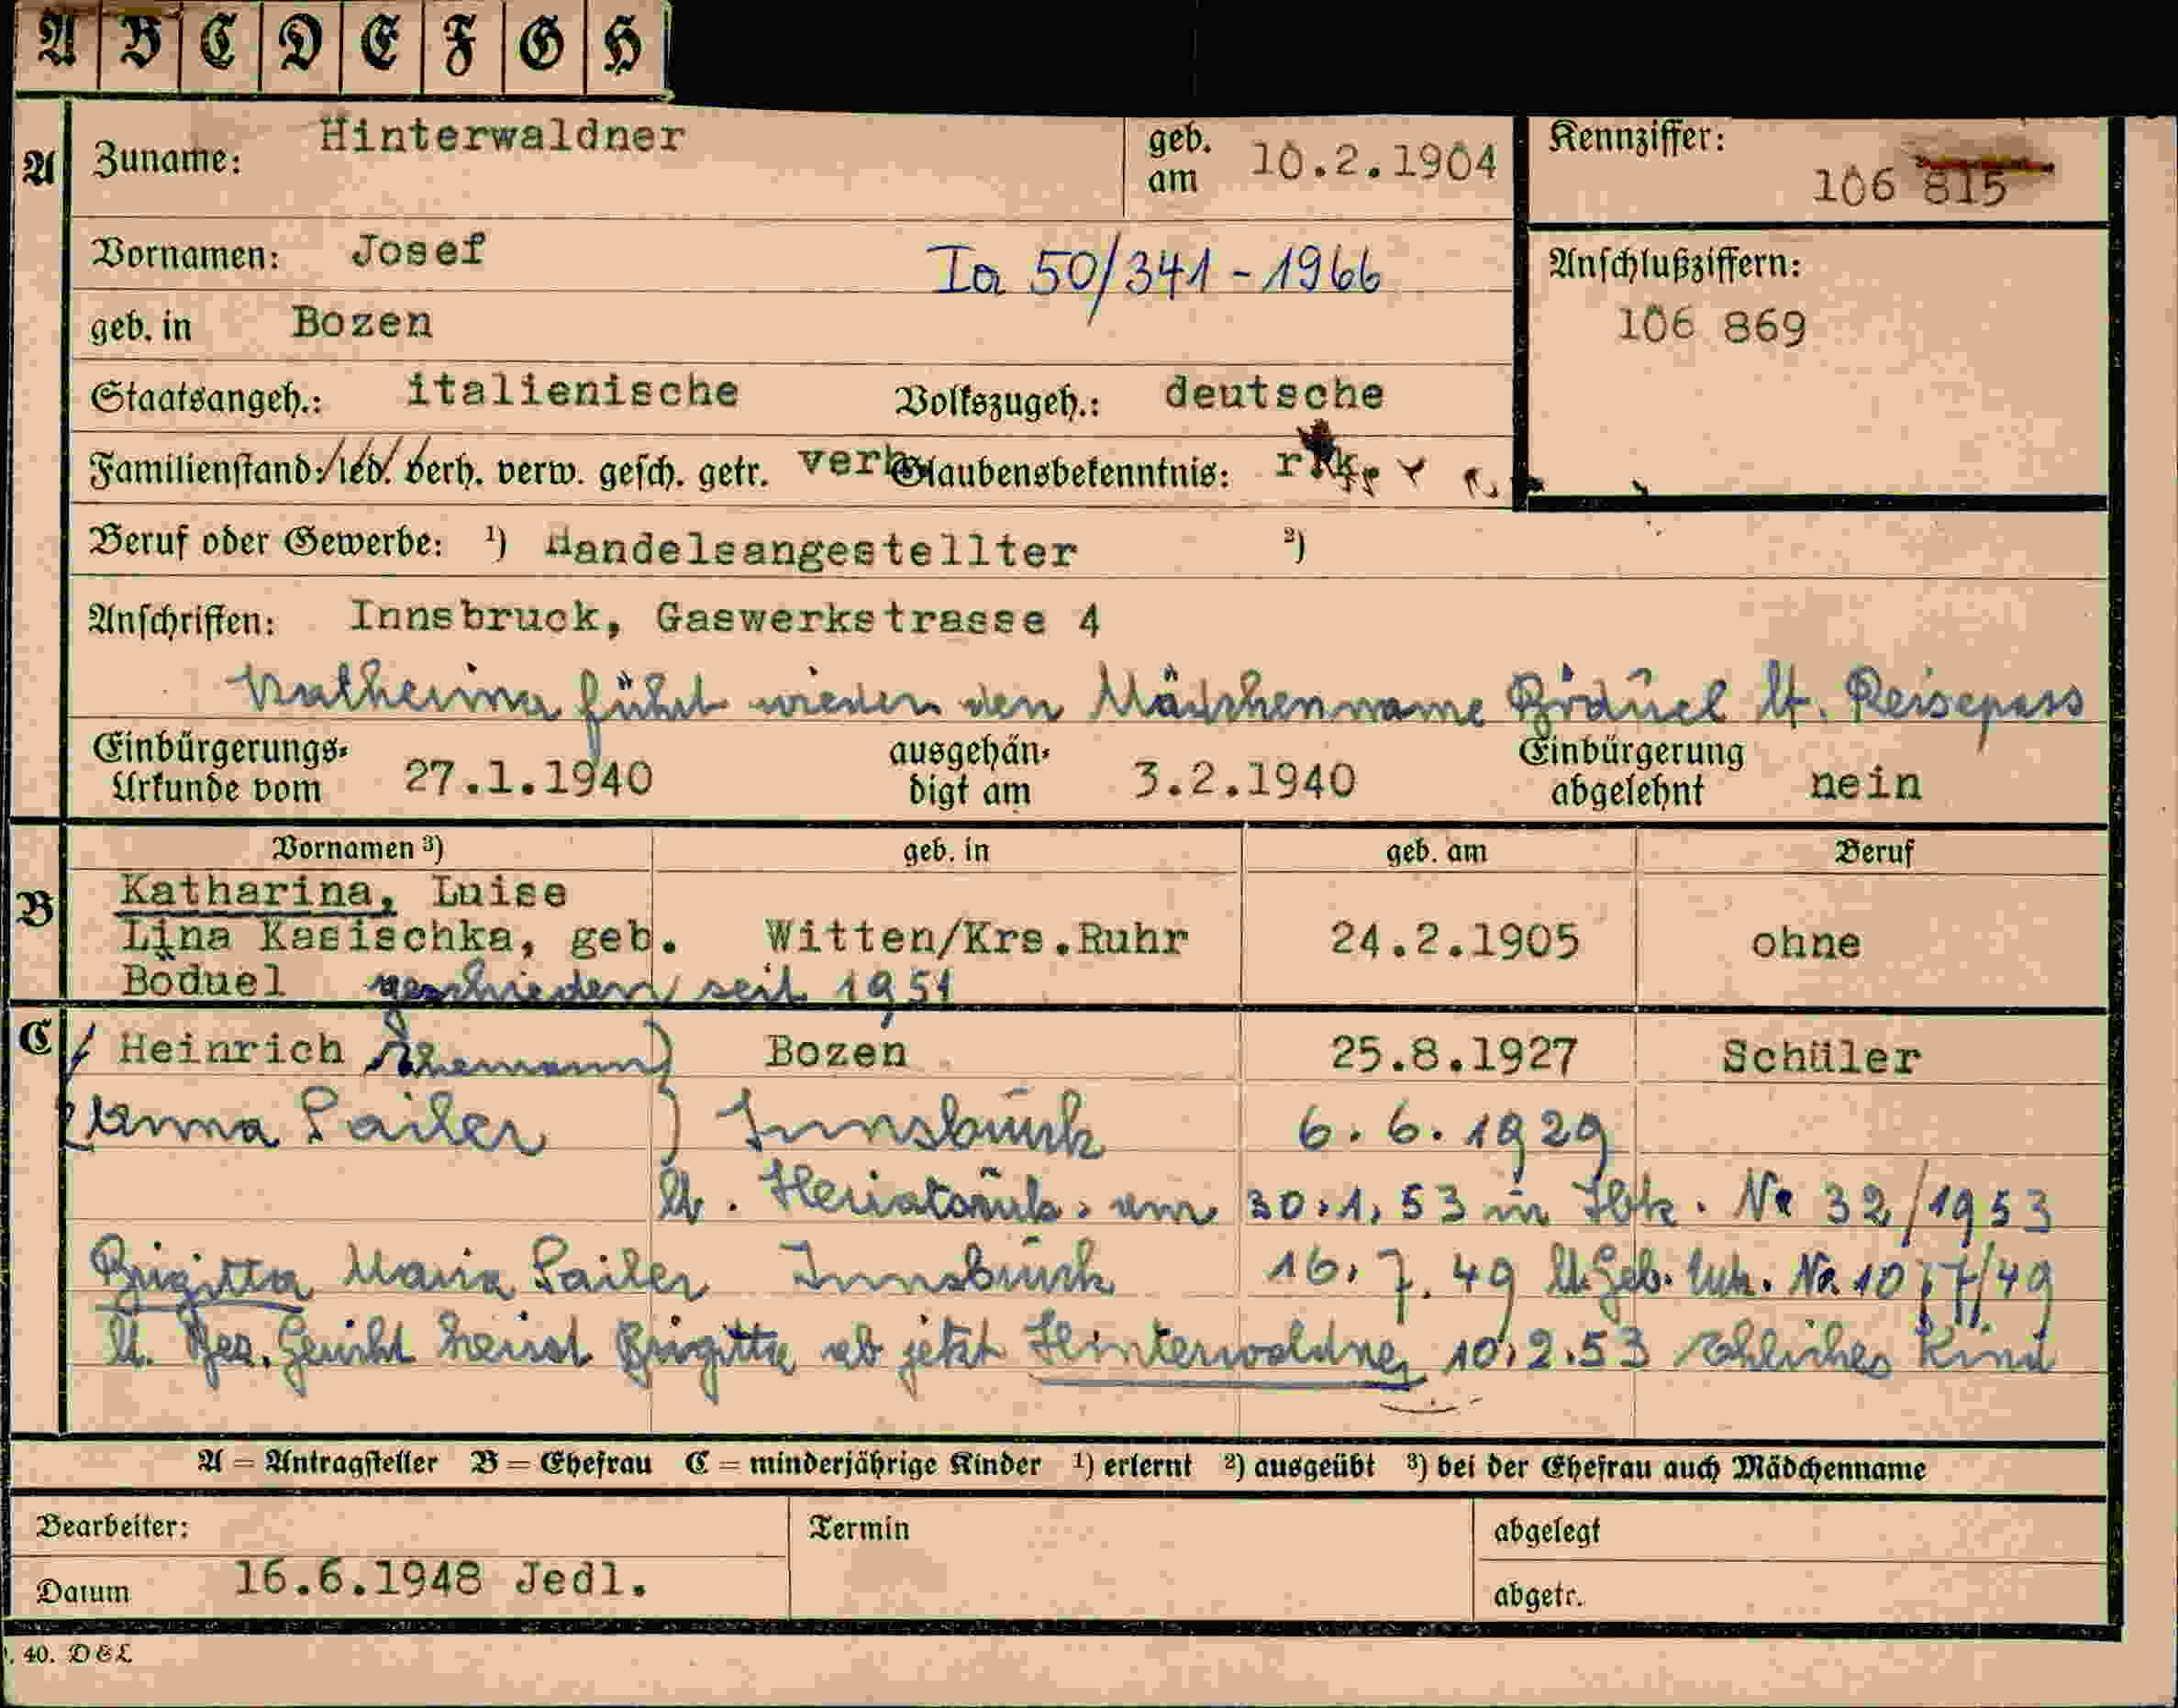 A B C D E F G H
A Zuname: Hinterwaldner geb. am 10.2.1904 Kennziffer: 106 815
Vornamen: Josef Ia 50/341-1966 Anschlußziffern:
geb. in Bozen 106 869
Staatsangeh.: italienische Volkszugeh.: deutsche
Familienstand: led. verh. verw. gesch. getr. verh. Glaubensbekenntnis: rk.
Beruf oder Gewerbe: ¹) Handelsangestellter ²)
Anschriften: Innsbruck, Gaswerkstrasse 4
führt wieder den Mädchenname lt. Reisepass
Einbürgerungs-Urkunde vom 27.1.1940 ausgehändigt am 3.2.1940 Einbürgerung abgelehnt nein
Vornamen ³) geb. in geb. am Beruf
B Katharina, Luise
Lina Kasischka, geb. Witten/Krs.Ruhr 24.2.1905 ohne
Böduel geschieden seit 1951
C Heinrich Ehemann) Bozen 25.8.1927 Schüler
Anna Sailer ) Innsbruck 6.6.1929
lt. am 30.1.53 in Ibk. Nr 32/1953
Brigitta Maria Sailer Innsbruck 16.7.49 lt. Geb. Urk. Nr.
lt. Bez. Gericht heisst Brigitta ab jetzt Hinterwaldner 10.2.53 eheliches Kind
A = Antragsteller B = Ehefrau C = minderjährige Kinder ¹) erlernt ²) ausgeübt ³) bei der Ehefrau auch Mädchenname
Bearbeiter: Termin abgelegt
Datum 16.6.1948 Jedl. abgetr.
40. D&L